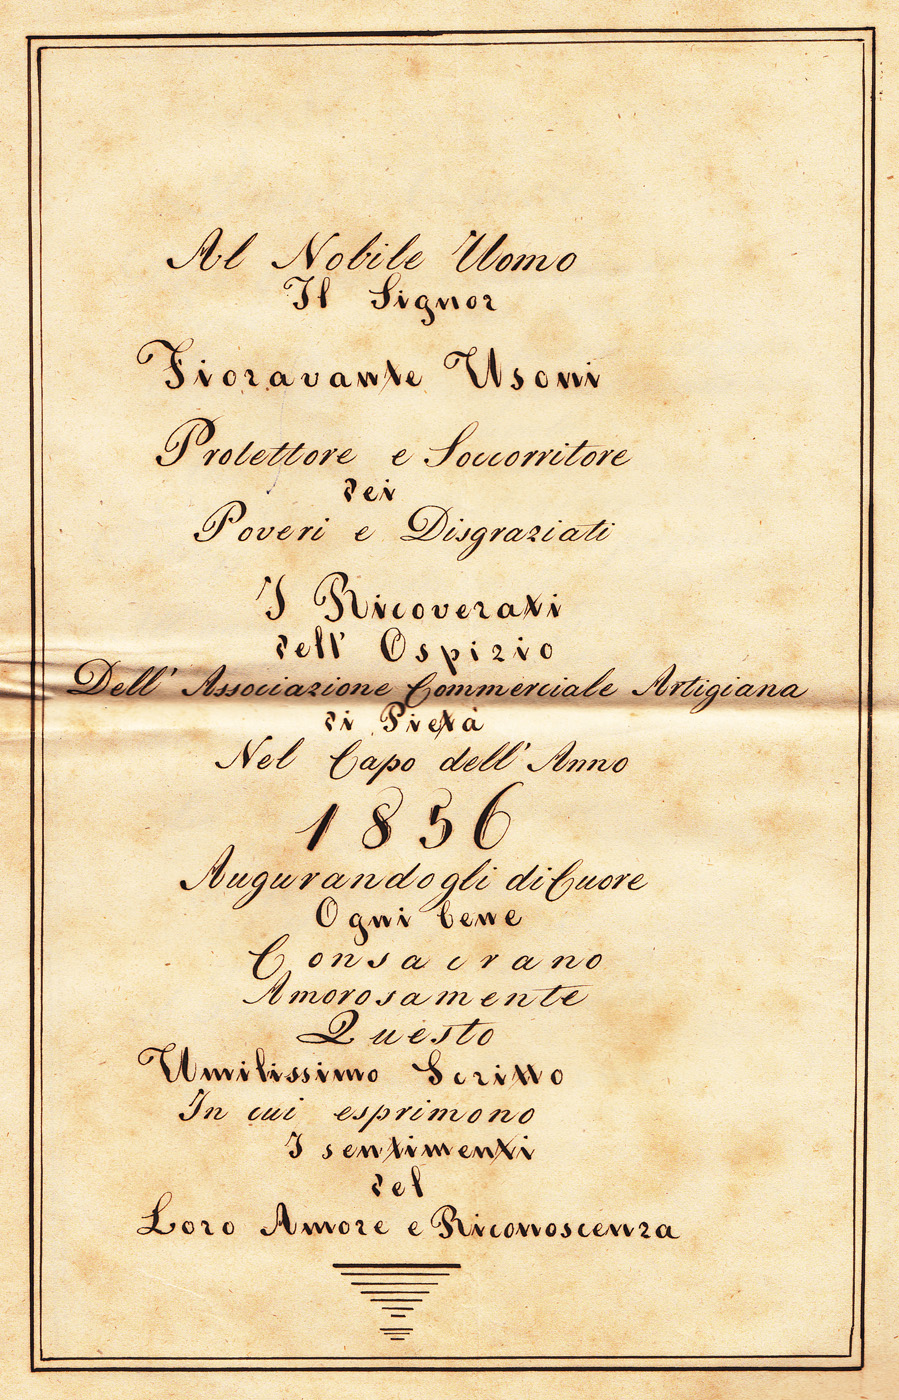 Al Nobile Uomo
Il Signor
Fioravante Usoni
Protettore e Soccorritore
dei
Poveri e Disgraziati
I Ricoverati
dell' Ospizio
Dell' Associazione Commerciale Artigiana
di Pietà
Nel Capo dell' Anno
1856
Augurandogli di Cuore
Ogni bene
Consacrano
Amorosamente
Questo
Umilissimo Scritto
In cui esprimono
I sentimenti
del
Loro Amore e Riconoscenza